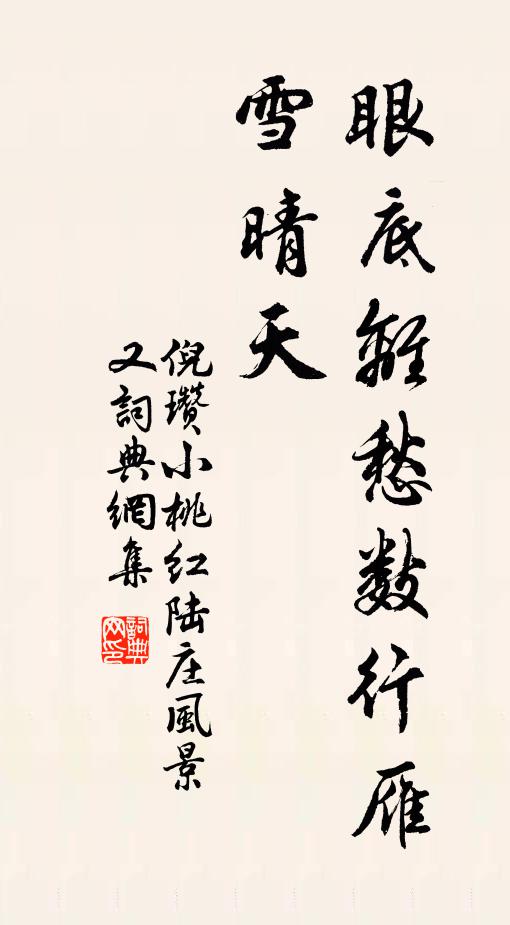 眼底離愁数行雁
雪晴天
倪瓚小桃红陆庄風景
又詞典網集
詞典
网印